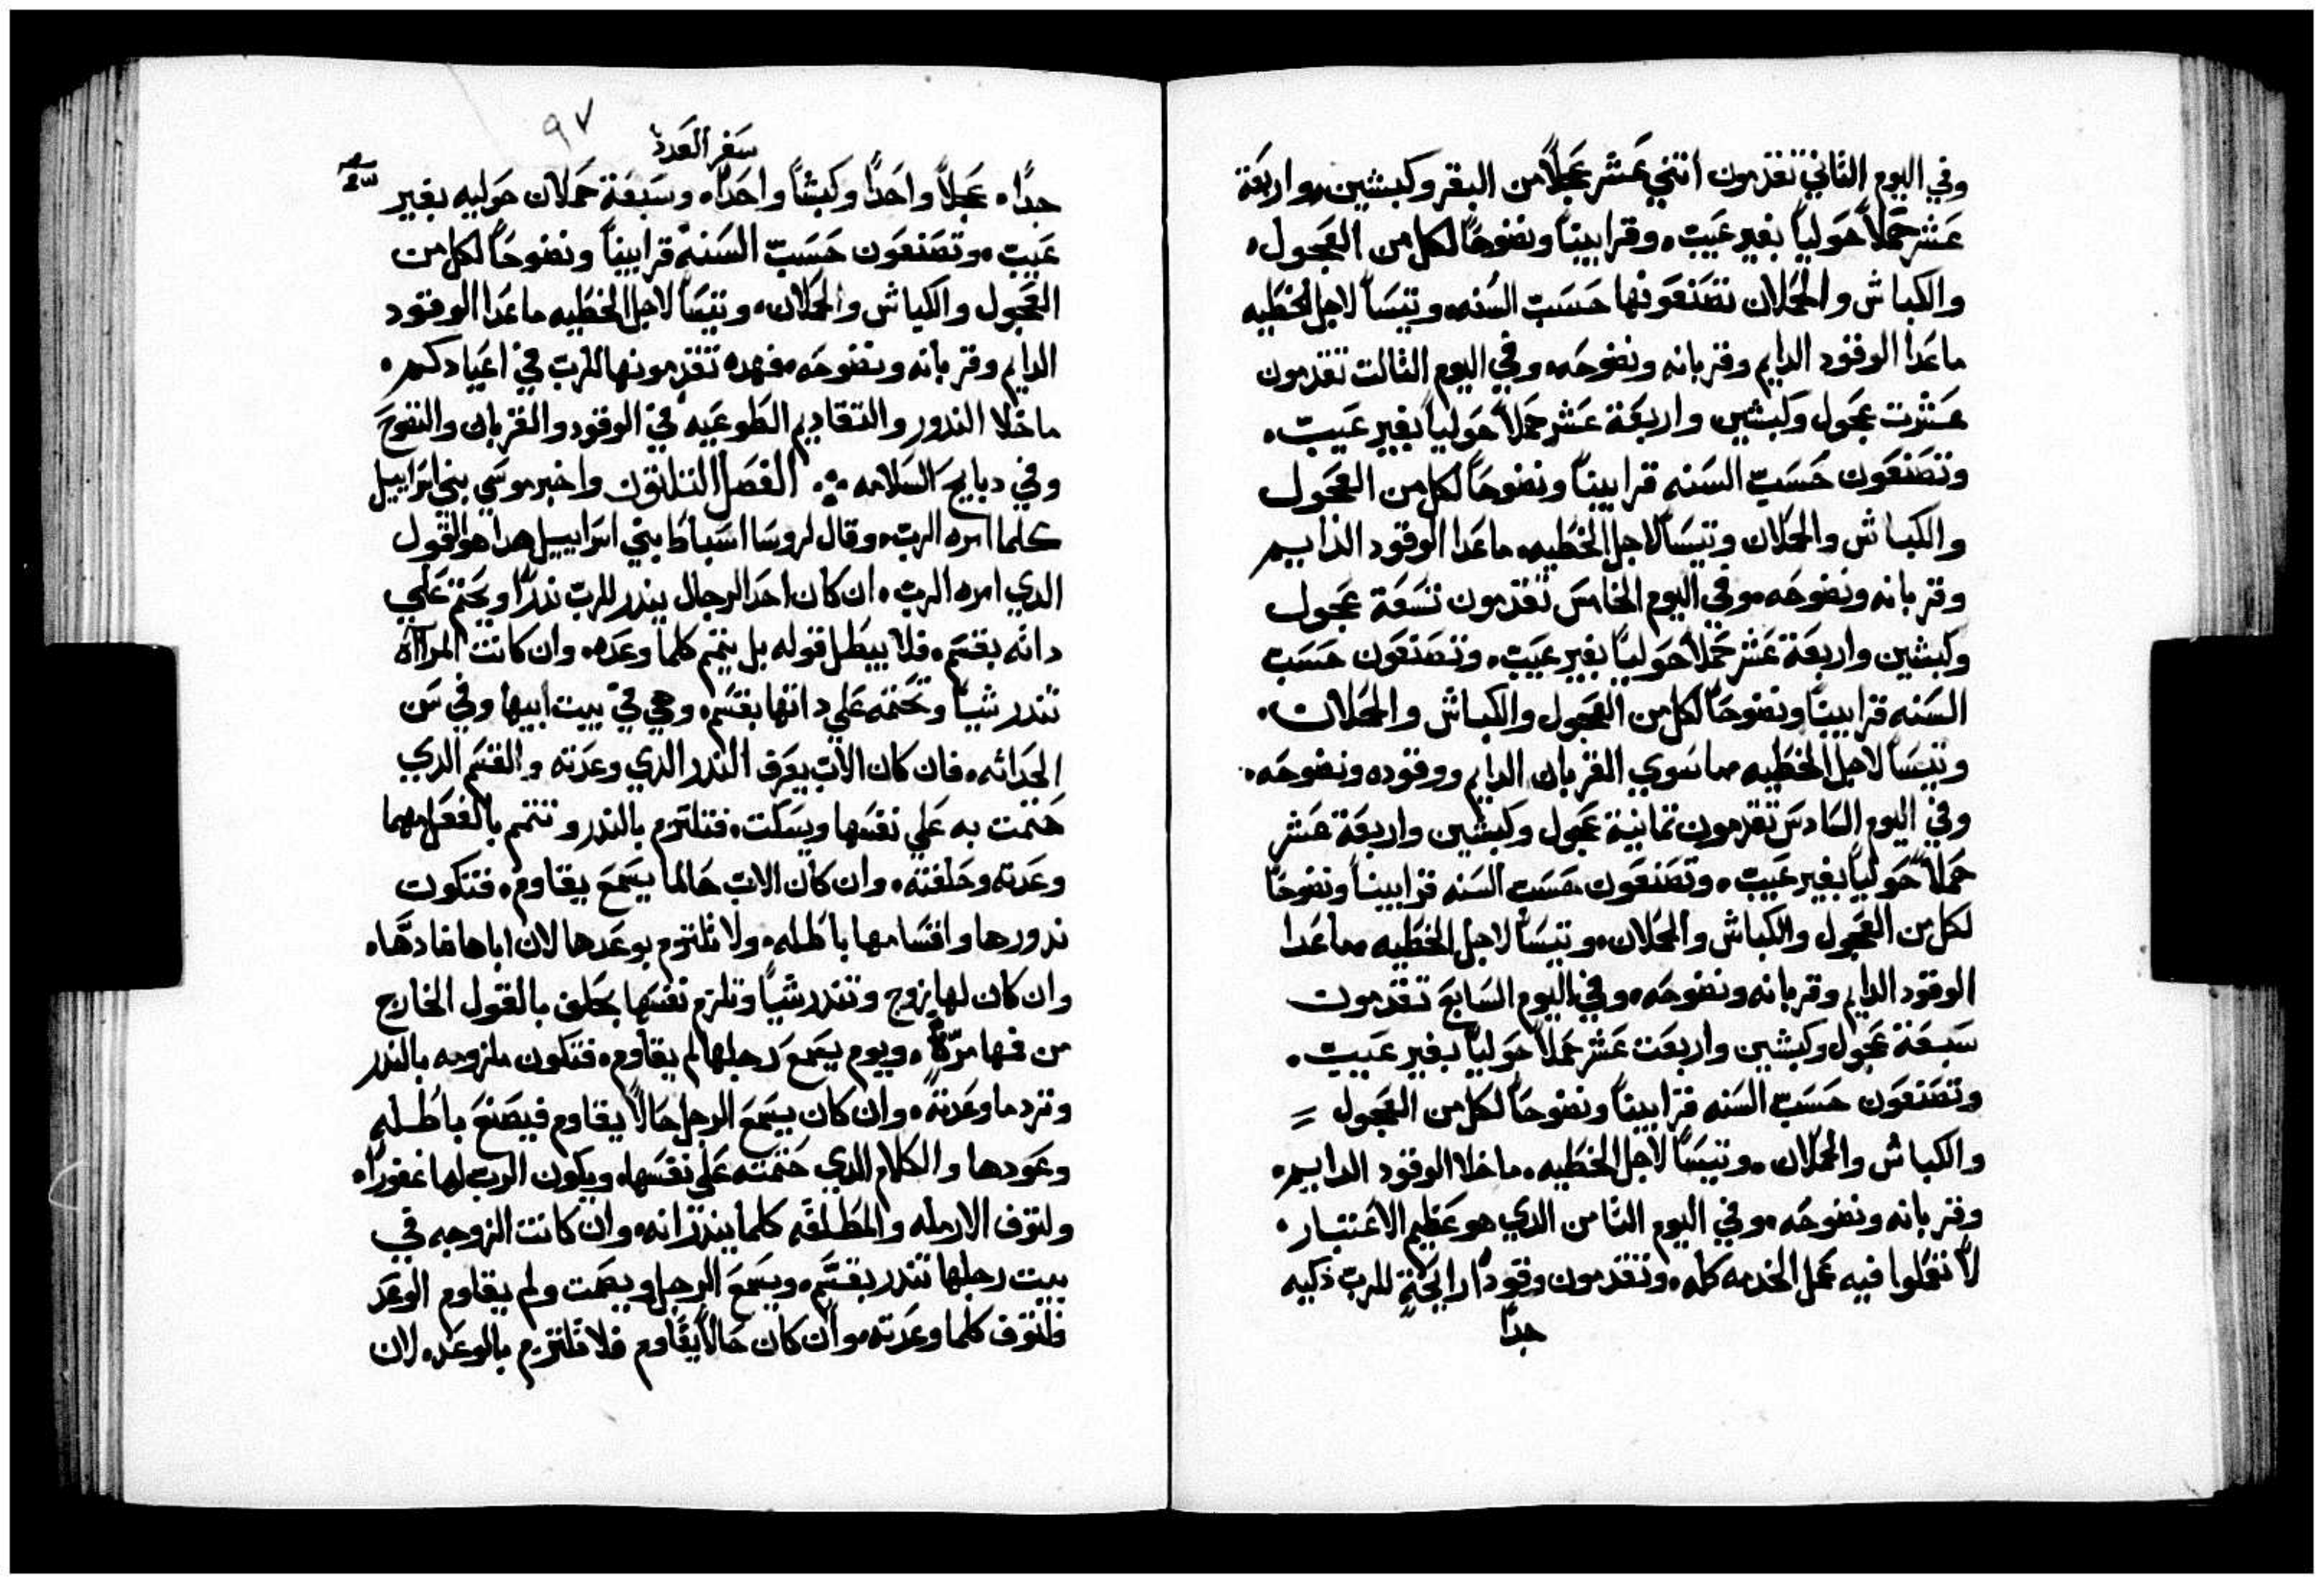 وفي اليوم الثاني تقدمون اتني عشر عجلاً من البقر وكبشين واربعة
عشر حملاً حولياً بغير عيب وقرابيناً ونضوحاً لكل من العجول
والكباش والحملان تصنعونها حسب السنه وتيساً لاجل الخطيه
ماعدا الوقود الدايم وقربانه ونضوحه وفي اليوم الثالت تقدمون
عشرت عجول وكبشين واربعة عشر حملاً حولياً بغير عيب
وتصنعون حسب السنه قرابيناً ونضوحاً لكل من العجول
والكباش والحملان وتيساً لاجل الخطيه ماعدا الوقود الدايم
وقربانه ونضوحه وفي اليوم الخامس تقدمون تسعة عجول
وكبشين واربعة عشر حملاً حولياً بغير عيب وتصنعون حسب
السنه قرابيناً ونضوحاً لكل من العجول والكباش والحملان
وتيساً لاجل الخطيه ماسوي القربان الدايم ووقوده ونضوحه
وفي اليوم السادس تقدمون تمانية عجول وكبشين واربعة عشر
حملاً حولياً بغير عيب وتصنعون حسب السنه قرابيناً ونضوحاً
لكل من العجول والكباش والحملان وتيساً لاجل الخطيه ماعدا
الوقود الدايم وقربانه ونضوحه وفي اليوم السابع تقدمون
سبعة عجول وكبشين واربعت عشر حملاً حولياً بغير عيب
وتصنعون حسب السنه قرابيناً ونضوحاً لكل من العجول
والكباش والحملان وتيساً لاجل الخطيه ماخلا الوقود الدايم
وقربانه ونضوحه وفي اليوم الثامن الدي هو عظيم الاعتبار
لا تعملوا فيه عمل الخدمه كله وتقدمون وقوداً رايحةٍ للرب ذكيه
جداً
٩٧
سفر العدد
جداً عجلاً واحداً وكبشاً واحداً وسبعة حملان حوليه بغير
عيب وتصنعون حسب السنه قرابيناً ونضوحاً لكل من
العجول والكباش والحملان وتيساً لاجل الخطيه ماعدا الوقود
الدايم وقربانه ونضوحه فهده تقدمونها للرب في اعيادكم
ماخلا الندور والتقاديم الطوعيه في الوقود والقربان والنضوح
وفي دبايح السلامه الفصل التلتون واخبر موسي بني اسراييل
كلما امره الرب وقال لروسا اسباط بني اسراييل هدا هو القول
الدي امره الرب ان كان احد الرجال يندر للرب ندراً او يختم علي
داته بقسم فلا يبطل قوله بل يتمم كلما وعده وان كانت المراآة
تندر شياً وتختمه علي داتها بقسم وهي في بيت ابيها وفي سن
الحداثه فان كان الاب يعرف الندر الدي وعدته والقسم الدي
ختمت به علي نفسها ويسكت فتلتزم بالندر وتتمم بالفعل مهما
وعدته وحلفته وان كان الاب حالما يسمع يقاوم فتكون
ندورها واقسامها باطله ولا تلتزم بوعدها لان اباها ضاددها
وان كان لها زوج وتندر شياً وتلزم نفسها بحلف بالقول الخارج
من فمها مرّة ويوم يسمع رجلها لم يقاوم فتكون ملزومه بالندر
وترد ماوعدته وان كان يسمع الرجل حالاً يقاوم فيصنع باطله
وعودها والكلام الدي ختمته علي نفسها ويكون الرب لها غفوراً
ولتوف الارمله والمطلقه كلما ينذرانه وان كانت الزوجه في
بيت رجلها تندر بقسم ويسمع الرجل ويصمت ولم يقاوم الوعد
فلتوف كلما وعدته وان كان حالاً يقاوم فلا تلتزم بالوعد لان